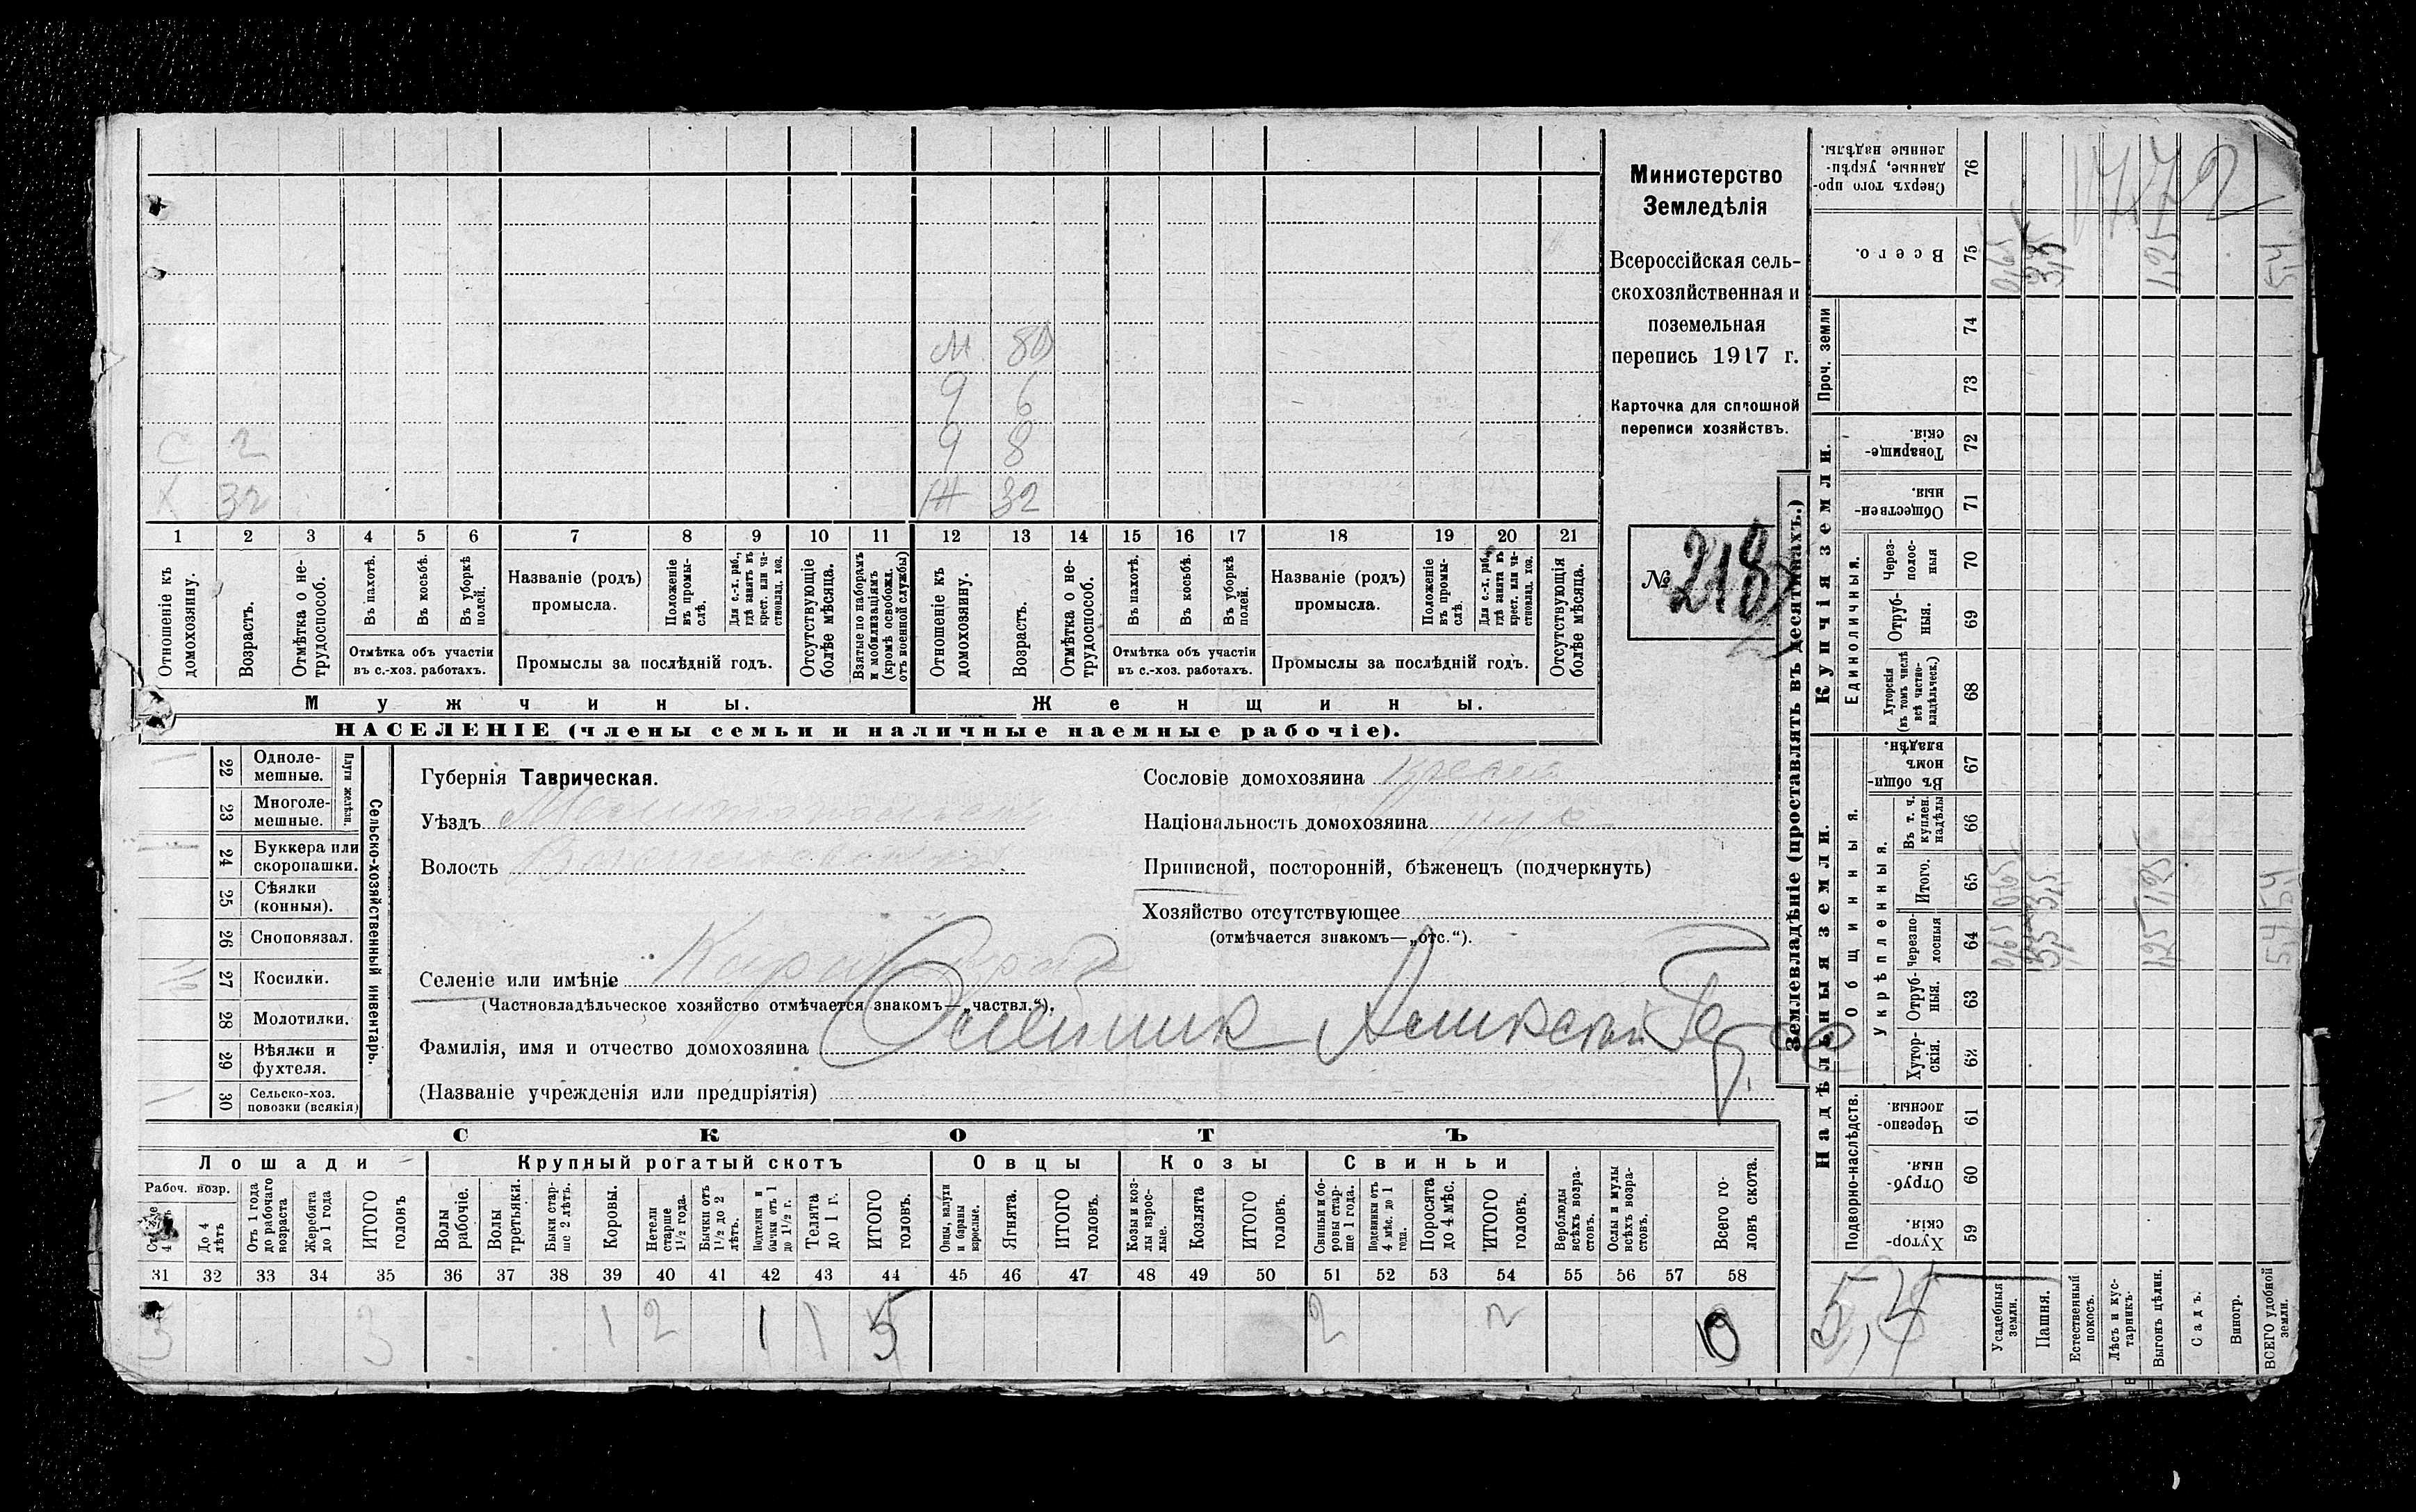 Министерство
Земледѣлія
Всероссійская сель-
скохозяйственная и
поземельная
перепись 1917 г.
Карточка для сплошной
переписи хозяйствъ.
№ 218
М 80
9 6
С 2 9 8
Х 32 Ж 32
1 2 3 4 5 6 7 8 9 10 11 12 13 14 15 16 17 18 19 20 21
Отношеніе къ домохозяину.
Возрастъ.
Отмѣтка о не-трудоспособ.
Въ пахотѣ.
Въ косьбѣ.
Въ уборкѣ полей.
Отмѣтка объ участіи
въ с.-хоз. работахъ.
Названіе (родъ)
промысла.
Положеніе въ промы-слѣ.
Для с.-х. раб., гдѣ занятъ въ крест. или ча-стновлад. хоз.
Промыслы за послѣдній годъ.
Отсутствующіе болѣе мѣсяца.
Взятые по наборамъ и мобилизаціямъ (кромѣ освобожд. отъ военной службы)
Отношеніе къ домохозяину.
Возрастъ.
Отмѣтка о не-трудоспособ.
Въ пахотѣ.
Въ косьбѣ.
Въ уборкѣ полей.
Отмѣтка объ участіи
въ с.-хоз. работахъ.
Названіе (родъ)
промысла.
Положеніе въ промы-слѣ.
Для с.-х. раб., гдѣ занята въ крест. или ча-стновлад. хоз.
Промыслы за послѣдній годъ.
Отсутствующія болѣе мѣсяца.
Мужчины. Женщины.
НАСЕЛЕНІЕ (члены семьи и наличные наемные рабочіе).
Сельско-хозяйственный инвентарь.
Плуги желѣзн.
22 Одноле-мешные.
23 Многоле-мешные.
24 Буккера или скоропашки.
25 Сѣялки (конныя).
26 Сноповязал.
27 Косилки.
28 Молотилки.
29 Вѣялки и фухтеля.
30 Сельско-хоз. повозки (всякія)
Губернія Таврическая.
Уѣздъ
Волость
Селеніе или имѣніе
(Частновладѣльческое хозяйство отмѣчается знакомъ—„частвл.“).
Фамилія, имя и отчество домохозяина
(Названіе учрежденія или предпріятія)
Сословіе домохозяина
Національность домохозяина
Приписной, посторонній, бѣженецъ (подчеркнуть)
Хозяйство отсутствующее
(отмѣчается знакомъ—„отс.“).
СКОТЪ
Лошади Крупный рогатый скотъ Овцы Козы Свиньи
Рабоч. возр.
До 4 лѣтъ
Отъ 1 года до рабочаго возраста
Жеребята до 1 года
ИТОГО головъ
Волы рабочіе.
Волы третьяки.
Быки стар-ше 2 лѣтъ.
Коровы.
Нетели старше 1½ года.
Бычки отъ 1½ до 2 лѣтъ.
Подтелки и бычки отъ 1 до 1½ г.
Телята до 1 г.
ИТОГО головъ.
Овцы, валухи и бараны взрослые.
Ягнята.
ИТОГО головъ.
Козы и коз-лы взрос-лые.
Козлята
ИТОГО головъ.
Свиньи и бо-ровы стар-ше 1 года.
Подсвинки отъ 4 мѣс. до 1 года.
Поросята до 4 мѣс.
ИТОГО головъ.
Верблюды всѣхъ возра-стовъ.
Ослы и мулы всѣхъ возра-стовъ.
Всего го-ловъ скота.
31 32 33 34 35 36 37 38 39 40 41 42 43 44 45 46 47 48 49 50 51 52 53 54 55 56 57 58
3 3 1 2 1 1 5 2 2 10
Землевладѣніе (проставлять въ десятинахъ.)
Надѣльныя земли. Купчія земли.
Подворно-наслѣдств.
59 Хутор-скія.
60 Отруб-ныя.
61 Черезпо-лосныя.
Общинныя.
Укрѣпленныя.
62 Хутор-скія.
63 Отруб-ныя.
64 Черезпо-лосныя
65 Итого.
66 Въ т. ч. куплен. надѣлы
67 Въ общин-номъ владѣн.
Единоличныя.
68 Хуторскія (въ томъ числѣ всѣ частно-владѣльческ.)
69 Отруб-ныя.
70 Через-полос-ныя
71 Обществен-ныя.
72 Товарище-скія.
Проч. земли
73
74
75 Всего.
76 Сверхъ того про-данные, укрѣп-ленные надѣлы.
Усадебныя земли.
Пашня.
Естественный покосъ.
Лѣсъ и кус-тарникъ.
Выгонъ цѣлин.
Садъ.
Виногр.
ВСЕГО удобной земли.
0,65 0,65 0,65
3,5 3,5 3,5
1,25 1,25 1,25
5,4 5,4 5,4
5,4
1772